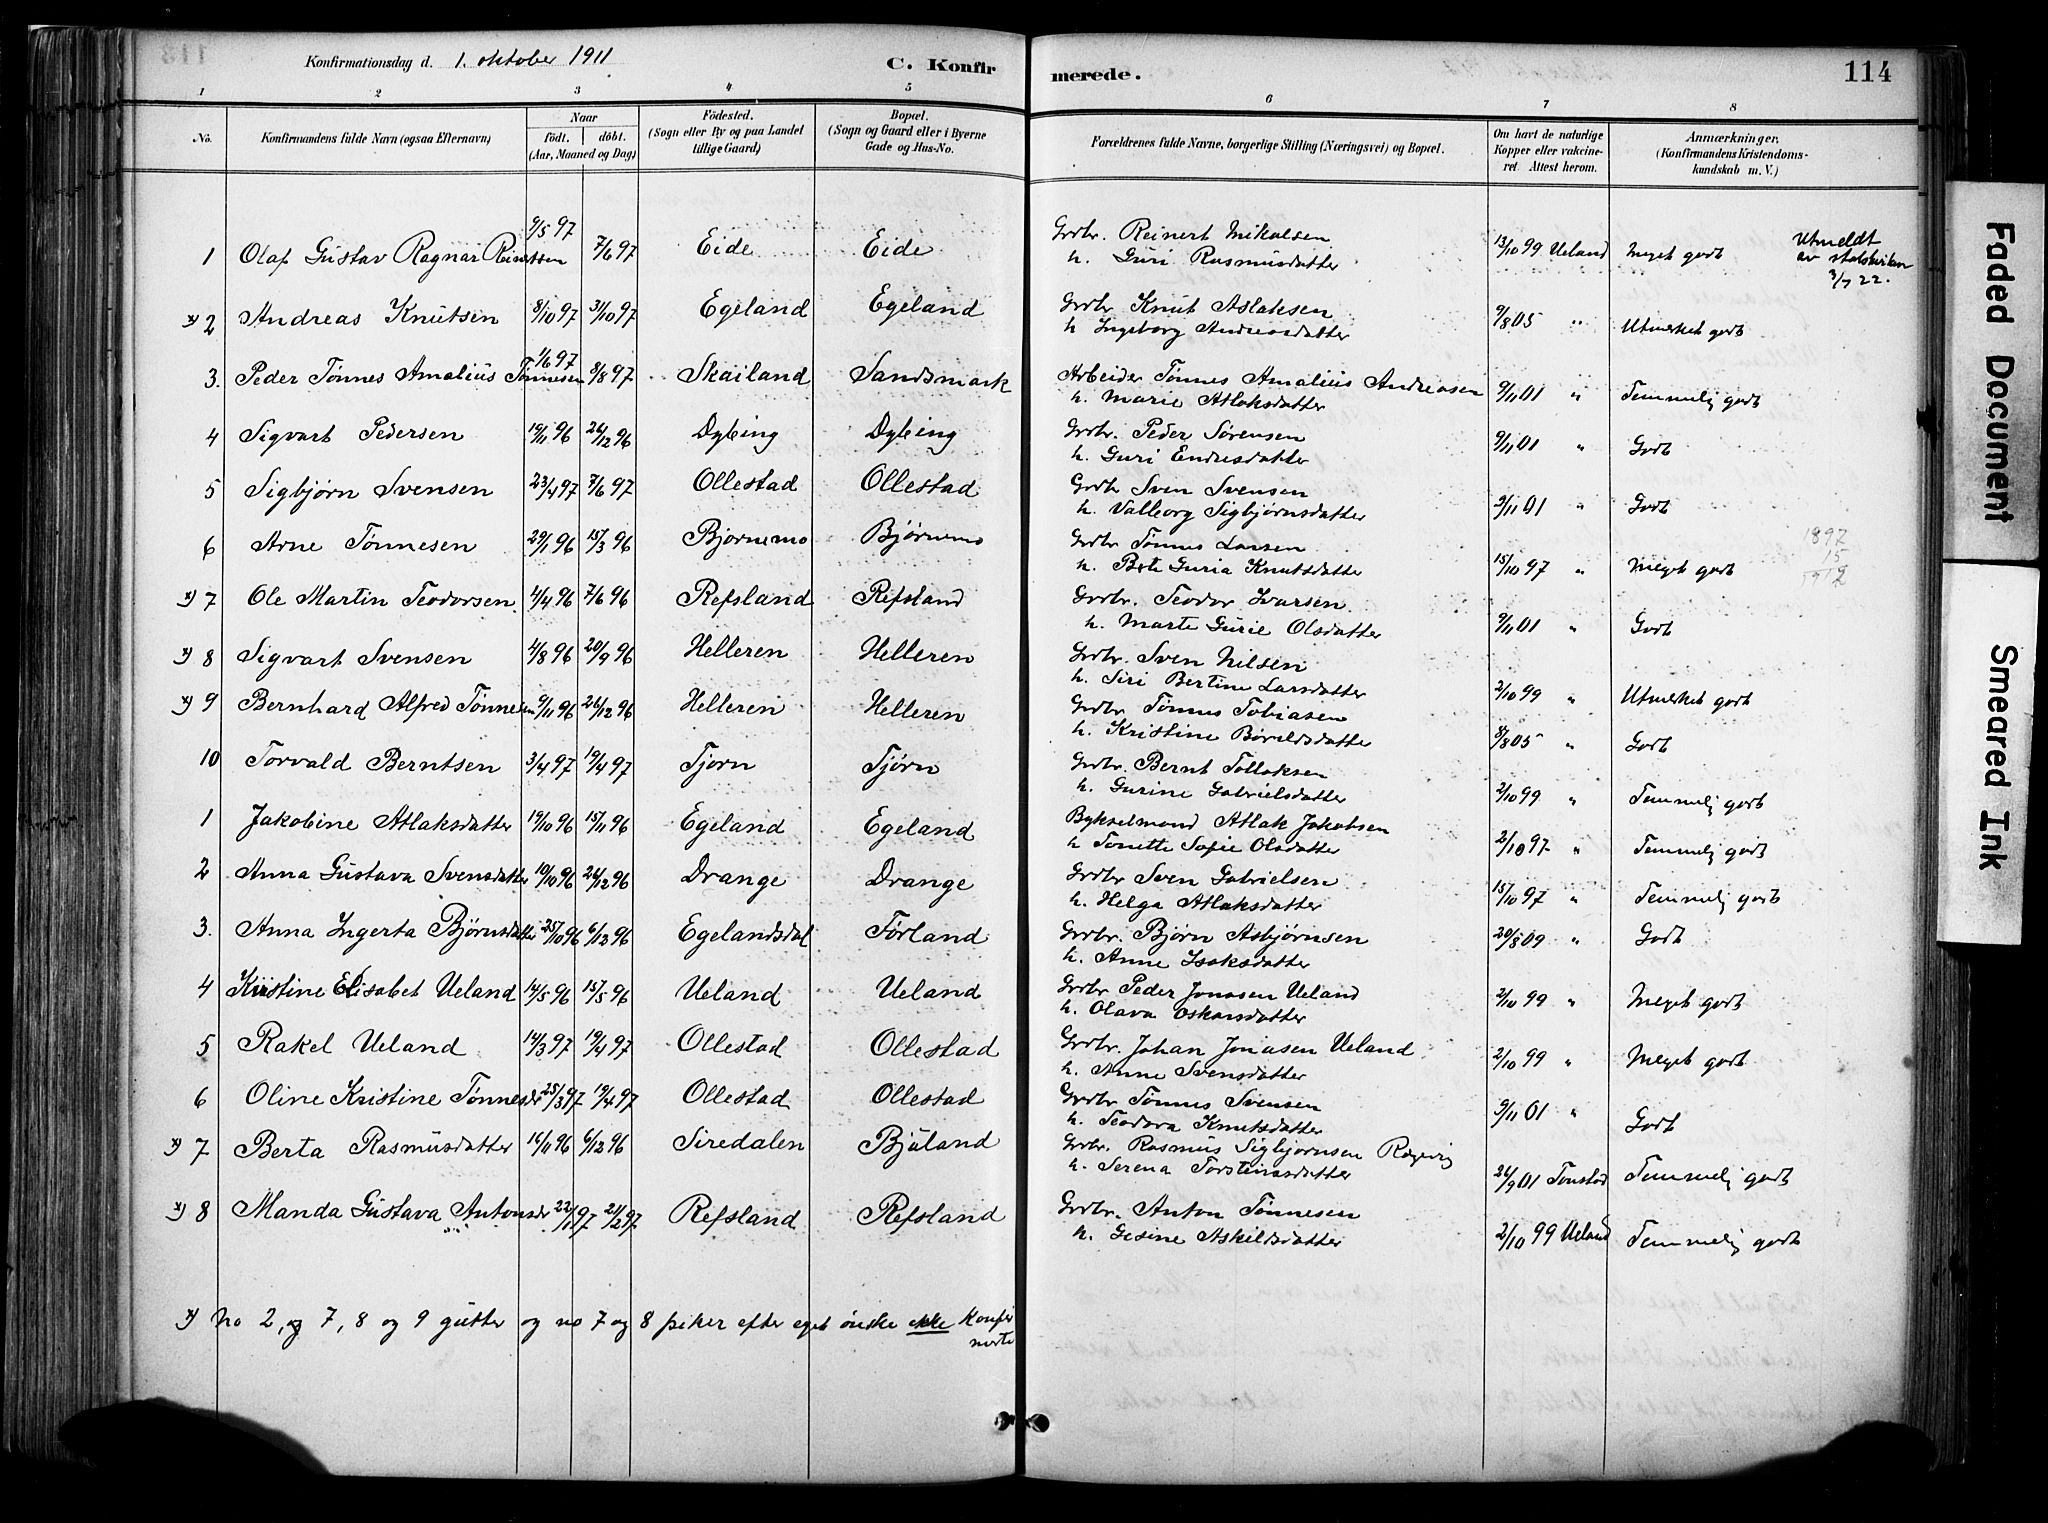 Konfirmationsdag d. 1. oktober 1911
C. Konfir
merede.
114
1 2 3 4 5 6 7 8
No.
Konfirmandens fulde Navn (ogsaa Efternavn)
Naar
födt. döbt.
(Aar, Maaned og Dag)
Födested.
(Sogn eller By og paa Landet
tillige Gaard)
Bopæl.
(Sogn og Gaard eller i Byerne
Gade og Hus-No.
Forældrenes fulde Navne, borgerlige Stilling (Næringsvei) og Bopæl.
Om havt de naturlige
Kopper eller vakcine-
ret. Attest herom.
Anmærkninger.
(Konfirmandens Kristendoms-
kundskab m. V.)
1 Olaf Gustav Ragnar Reinertsen 9/5 97 7/6 97 Eide Eide Grdbr. Reinert Mikalsen 13/10 99 Ueland Meget godt
h. Guri Rasmusdatter
Utmeldt
av statskirken
3/7 22.
x) 2 Andreas Knutsen 8/10 97 31/10 97 Egeland Egeland Grdbr Knut Aslaksen 9/8 05 " Utmerket godt
h Ingeborg Andreasdatter
3. Peder Tønnes Amalius Tønnesen 1/6 97 8/8 97 Skailand Sandsmark Arbeider Tønnes Amalius Andreasen 9/11 01 " Temmelig godt
h. Marie Atlaksdatter
4 Sigvart Pedersen 19/11 96 26/12 96 Dybing Dybing Grdbr. Peder Sørensen 9/11 01 " Godt
h. Guri Endresdatter
5 Sigbjørn Svensen 23/4 97 7/6 97 Ollestad Ollestad Grdbr Sven Svensen 2/11 01 " Godt
h. Valborg Sigbjørnsdatter
6 Arne Tønnesen 29/1 96 15/3 96 Bjørnemo Bjørnemo Grdbr Tønnes Larsen 15/10 97 " Meget godt
h. Berte Guria Knutsdatter
1897
15
1912
x) 7 Ole Martin Teodorsen 4/4 96 7/6 96 Refsland Refsland Grdbr. Teodor Ivarsen 9/11 01 " Godt
h. Marte Gurie Olsdatter
x) 8 Sigvart Svensen 4/8 96 20/9 96 Helleren Helleren Grdbr. Sven Nilsen 2/10 99 " Utmerket godt
h. Siri Bertine Larsdatter
x) 9 Bernhard Alfred Tønnesen 9/11 96 26/12 96 Helleren Helleren Grdbr Tønnes Tobiasen 8/8 05 " Godt
h. Kristine Børildsdatter
10 Torvald Berntsen 3/4 97 19/4 97 Tjorn Tjørn Grdbr. Bernt Tollaksen 2/10 99 " Temmelig godt
h. Gurine Gabrielsdatter
1 Jakobine Atlaksdatter 19/10 96 15/11 96 Egeland Egeland Bykselmand Atlak Jakobsen 2/10 97 " Temmelig godt
h Tonette Sofie Olsdatter
2 Anna Gustava Svensdatter 10/10 96 26/12 96 Drange Drange Grdbr Sven Gabrielsen 15/10 97 " Temmelig godt
h. Helga Atlaksdatter
3. Anna Ingerta Bjørnsdatter 25/10 96 6/12 96 Egelandsdal Førland Grdbr. Bjørn Asbjørnsen 20/8 09 " Godt
h. Anne Isaksdatter
4 Kristine Elisabet Ueland 14/5 96 15/5 96 Ueland Ueland Grdbr Peder Jonasen Ueland 2/10 99 " Meget godt
h. Olava Oskarsdatter
5 Rakel Ueland 14/3 97 19/4 97 Ollestad Ollestad Grdbr. Johan Jonasen Ueland 2/10 99 " Meget godt
h. Anne Svensdatter
6 Oline Kristine Tønnesdr 25/3 97 19/4 97 Ollestad Ollestad Grdbr Tønnes Svensen 9/11 01 " Godt
h. Teodora Knutsdatter
x) 7 Berta Rasmusdatter 16/11 96 6/12 96 Siredalen Bjuland Grdbr. Rasmus Sigbjørnsen 26/9 01 Tonstad Temmelig godt
h. Serena Torsteinsdatter
x) 8 Manda Gustava Antonsdr 22/1 97 21/2 97 Refsland Refsland Grdbr. Anton Tønnesen 2/10 99 Ueland Temmelig godt
h. Gesine Askildsdatter
x) No 2, og 7, 8 og 9 gutter og no 7 og 8 piker efter eget ønske ikke Konfir
merte
Faded Document
Smeared Ink